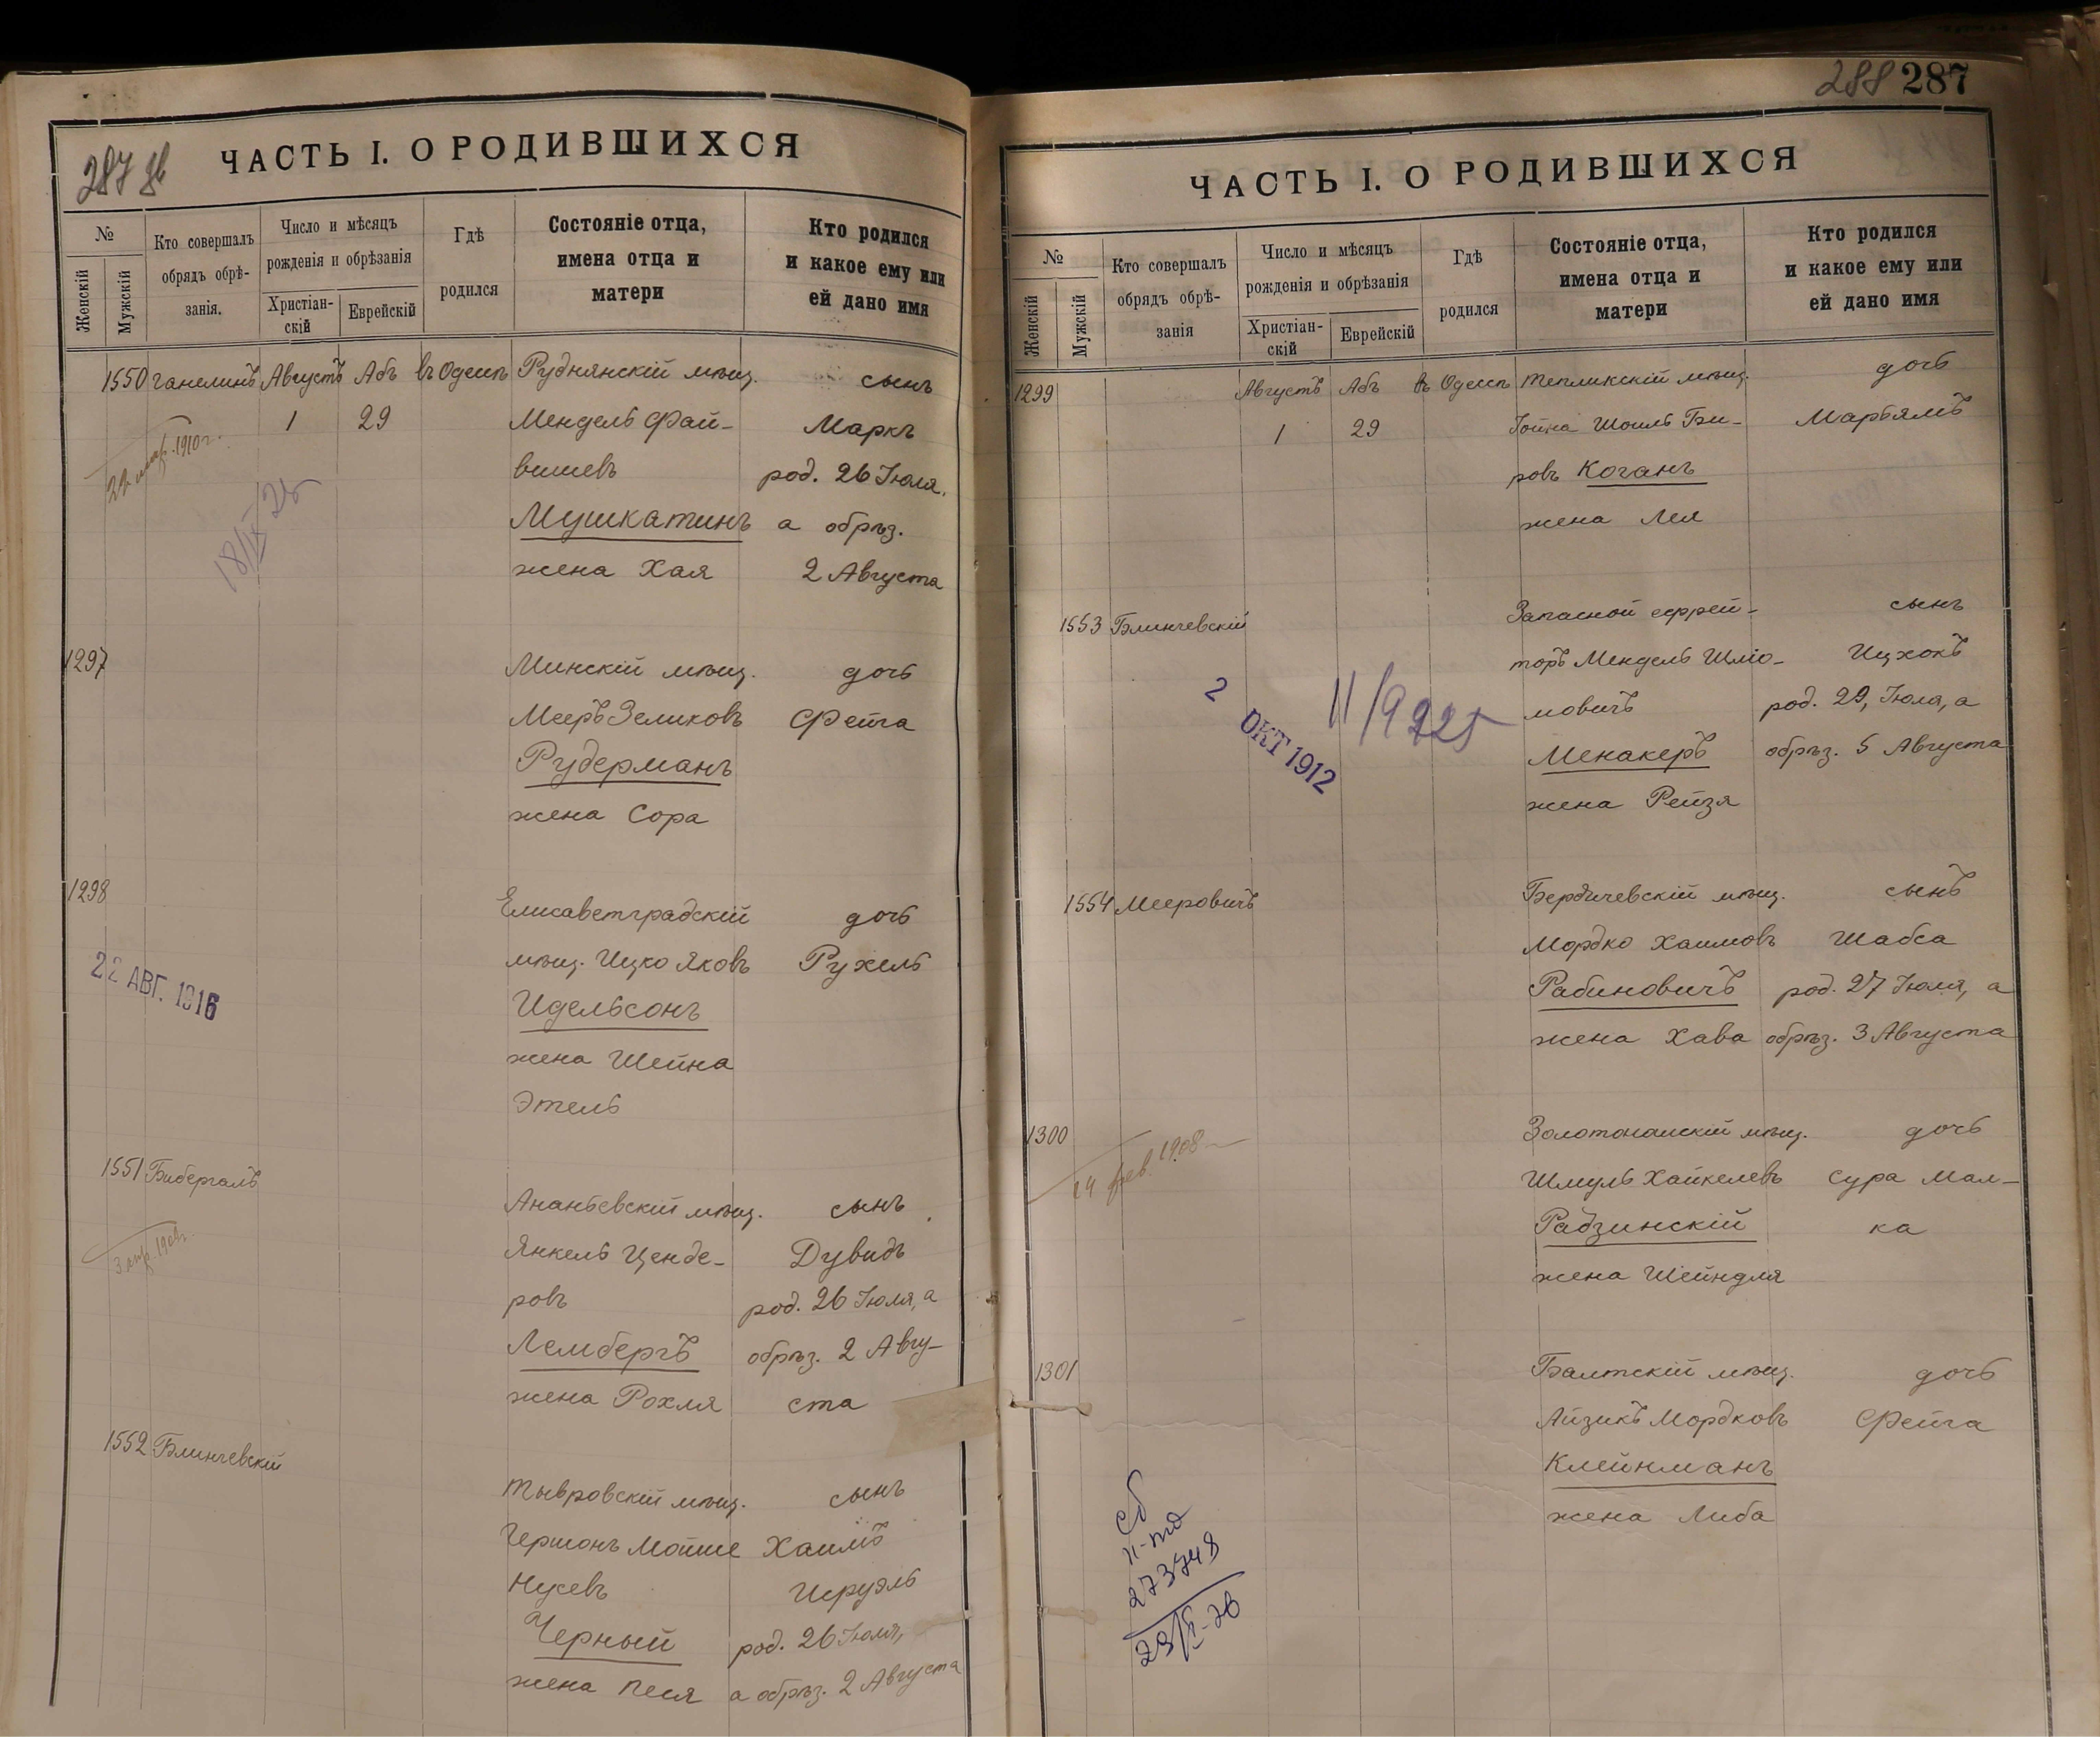 287 об
ЧАСТЬ I. О РОДИВШИХСЯ
№
Женскій
Мужскій
Кто совершалъ
обрядъ обрѣ-
занія.
Число и мѣсяцъ
рожденія и обрѣзанія
Христіан-
скій
Еврейскій
Гдѣ
родился
Состояніе отца,
имена отца и
матери
Кто родился
и какое ему или
ей дано имя
1550 Ганелинъ Августъ Абъ въ Одессѣ Руднянскій мѣщ. сынъ
1 29 Мендель Фай- Маркъ
вишевъ род. 26 Іюля,
Мушкатинъ а обрѣз.
жена Хая 2 Августа
1910 г.
18/IX 25
1297 Минскій мѣщ. дочь
Мееръ Зеликовъ Фейга
Рудерманъ
жена Сора
1298 Елисаветградскій дочь
мѣщ. Ицко Яковъ Рухель
Идельсонъ
жена Шейна
Этель
22 АВГ. 1916
1551 Бибергалъ Ананьевскій мѣщ. сынъ
Янкель Ценде- Дувидъ
ровъ род. 26 Іюля, а
Лембергъ обрѣз. 2 Авгу-
жена Рохля ста
1552 Блинчевскій Тывровскій мѣщ. сынъ
Гершонъ Мойше Хаимъ
Нусевъ Исруэль
Черный род. 26 Іюля,
жена Песя а обрѣз. 2 Августа
288 287
ЧАСТЬ I. О РОДИВШИХСЯ
№
Женскій
Мужскій
Кто совершалъ
обрядъ обрѣ-
занія
Число и мѣсяцъ
рожденія и обрѣзанія
Христіан-
скій
Еврейскій
Гдѣ
родился
Состояніе отца,
имена отца и
матери
Кто родился
и какое ему или
ей дано имя
1299 Августъ Абъ въ Одессѣ Тепликскій мѣщ. дочь
1 29 Іойна Шоиль Бе- Марьямъ
ровъ Коганъ
жена Лея
1553 Блинчевскій Запасной ефрей- сынъ
торъ Мендель Шлю- Ицхокъ
мовичъ род. 29, Іюля, а
Менакеръ обрѣз. 5 Августа
жена Рейзя
2 ОКТ 1912
11/9 925
1554 Мееровичъ Бердичевскій мѣщ. сынъ
Мордко Хаимовъ Шабса
Рабиновичъ род. 27 Іюля, а
жена Хава обрѣз. 3 Августа
1300 Золотоношскій мѣщ. дочь
Шмуль Хайкелевъ Сура Мал-
Радзинскій ка
жена Шейндля
14 фев. 1908
1301 Балтскій мѣщ. дочь
Айзикъ Мордковъ Фейга
Клейнманъ
жена Либа
273748